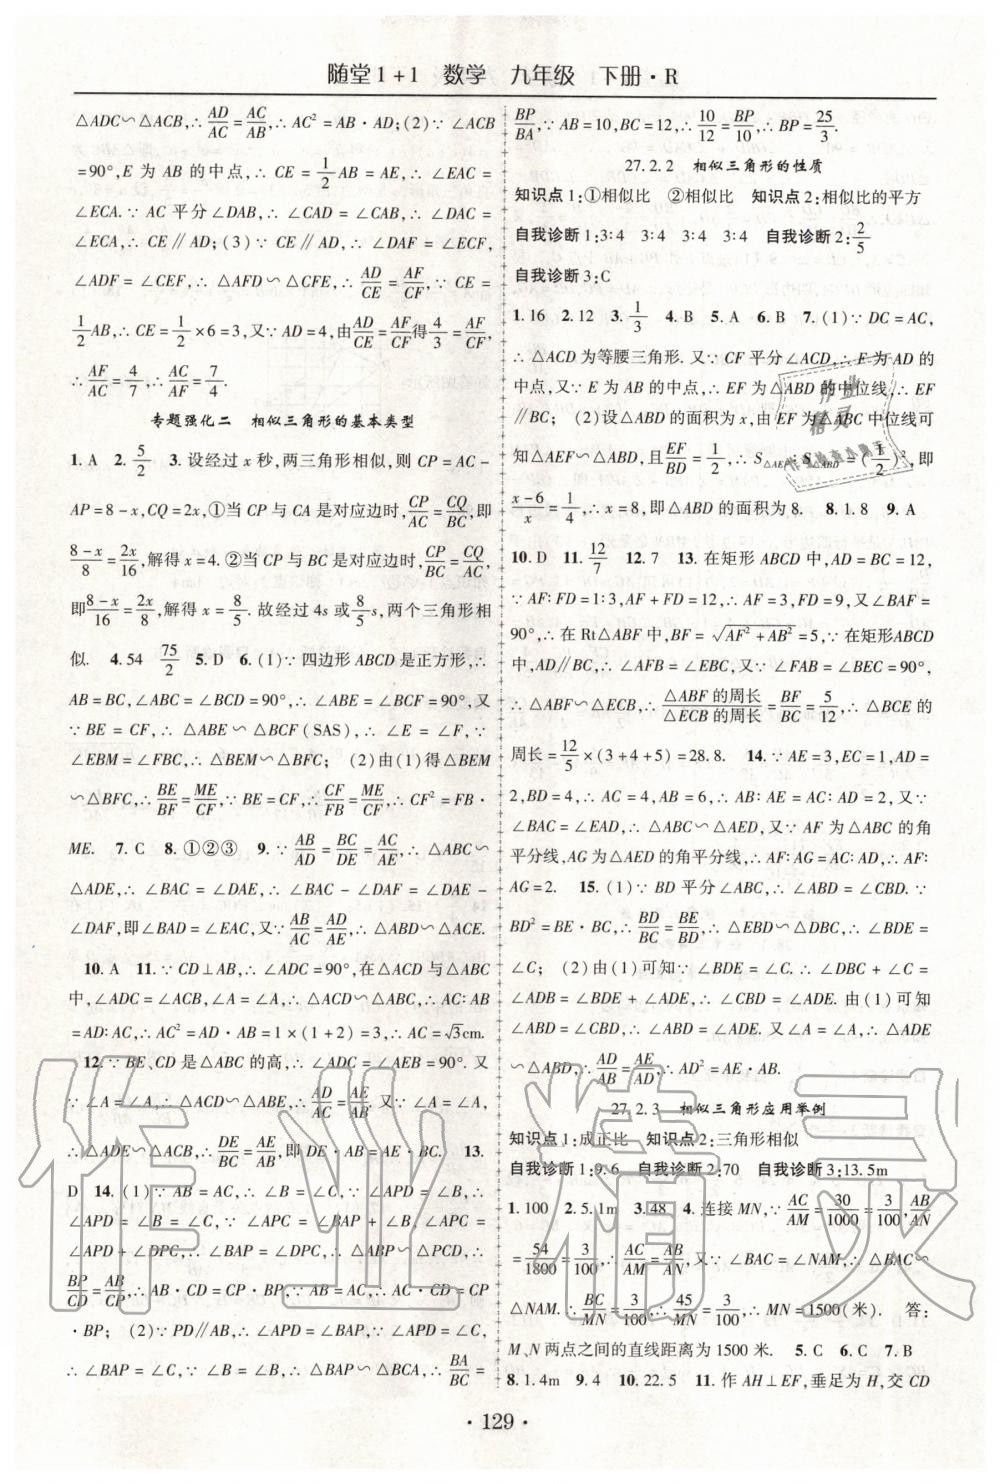 随堂1+1 数学 九年级 下册·R
△ADC∽△ACB,∴AD/AC=AC/AB,∴AC²=AB·AD;(2)∵∠ACB
=90°,E 为 AB 的中点,∴CE=1/2AB=AE,∴∠EAC=
∠ECA.∵AC 平分∠DAB,∴∠CAD=∠CAB,∴∠DAC=
∠ECA,∴CE∥AD;(3)∵CE∥AD,∴∠DAF=∠ECF,
∠ADF=∠CEF,∴△AFD∽△CFE,∴AD/CE=AF/CF,∵CE=
1/2AB,∴CE=1/2×6=3,又∵AD=4,由AD/CE=AF/CF得4/3=AF/CF,
∴AF/AC=4/7,∴AC/AF=7/4.
专题强化二 相似三角形的基本类型
1.A 2.5/2 3.设经过 x 秒,两三角形相似,则 CP=AC-
AP=8-x,CQ=2x,①当 CP 与 CA 是对应边时,CP/AC=CQ/BC,即
8-x/8=2x/16,解得 x=4.②当 CP 与 BC 是对应边时,CP/BC=CQ/AC,
即8-x/16=2x/8,解得 x=8/5.故经过 4s 或8/5s,两个三角形相
似. 4.54 75/2 5.D 6.(1)∵四边形 ABCD 是正方形,∴
AB=BC,∠ABC=∠BCD=90°,∴∠ABE=∠BCF=90°,又
∵BE=CF,∴△ABE∽△BCF(SAS),∴∠E=∠F,又∵
∠EBM=∠FBC,∴△EBM∽△BFC; (2)由(1)得△EBM
∽△BFC,∴BE/BF=ME/CF,∵BE=CF,∴CF/FB=ME/CF,∴CF²=FB·
ME. 7.C 8.①②③ 9.∵AB/AD=BC/DE=AC/AE,∴△ABC∽
△ADE,∴∠BAC=∠DAE,∴∠BAC-∠DAF=∠DAE-
∠DAF,即∠BAD=∠EAC,又∵AB/AC=AD/AE,∴△ABD∽△ACE.
10.A 11.∵CD⊥AB,∴∠ADC=90°,在△ACD 与△ABC
中,∠ADC=∠ACB,∠A=∠A,∴△ACD∽△ABC,∴AC∶AB
=AD∶AC,∴AC²=AB·AD=1×(1+2)=3,∴AC=√3cm.
12.∵BE、CD 是△ABC 的高,∴∠ADC=∠AEB=90°.又
∵∠A=∠A,∴△ACD∽△ABE,∴AD/AC=AE/AB.又∵∠A=∠A,
∴△ADE∽△ACB,∴DE/BC=AE/AB,即 DE·AB=AE·BC. 13.
D 14.(1)∵AB=AC,∴∠B=∠C,∵∠APD=∠B,∴
∠APD=∠B=∠C,∵∠APC=∠BAP+∠B,∠APC=
∠APD+∠DPC,∴∠BAP=∠DPC,∴△ABP∽△PCD,∴
BP/CD=AB/CP,∴AB·CD=CP·BP,∵AB=AC,∴AC·CD=CP
·BP; (2)∵PD∥AB,∴∠APD=∠BAP,∵∠APD=∠C,
∴∠BAP=∠C,∵∠B=∠B,∴△BAP∽△BCA,∴BA/BC=
BP/BA,∵AB=10,BC=12,∴10/12=BP/10,∴BP=25/3.
27.2.2 相似三角形的性质
知识点1:①相似比 ②相似比 知识点2:相似比的平方
自我诊断1:3∶4 3∶4 3∶4 自我诊断2:2/5
自我诊断3:C
1.16 2.12 3.1/3 4.B 5.A 6.B 7.(1)∵DC=AC,
∴△ACD 为等腰三角形.又∵CF 平分∠ACD,∴F 为 AD 的
中点,又∵E 为 AB 的中点,∴EF 为△ABD 的中位线,∴EF
∥BC; (2)设△ABD 的面积为 x,由 EF 为△ABC 中位线可
知△AEF∽△ABD,且EF/BD=1/2,∴S△AEF∶S△ABD=(1/2)²,即
x-6/x=1/4,∴x=8,即△ABD 的面积为 8. 8.1.8 9.A
10.D 11.12/7 12.7 13.在矩形 ABCD 中,AD=BC=12,
∵AF∶FD=1∶3,AF+FD=12,∴AF=3,又∵∠BAF=
90°,∴在 Rt△ABF 中,BF=√AF²+AB²=5,∵在矩形ABCD
中,AD∥BC,∴∠AFB=∠EBC,又∵∠FAB=∠BEC=90°,
∴△ABF∽△ECB,∴△ABF 的周长/△ECB 的周长=BF/BC=5/12,∴△BCE 的
周长=12/5×(3+4+5)=28.8. 14.∵AE=3,EC=1,AD=
2,BD=4,∴AC=4,AB=6,∴AB∶AE=AC∶AD=2,又∵
∠BAC=∠EAD,∴△ABC∽△AED,又∵AF 为△ABC 的角
平分线,AG 为△AED 的角平分线,∴AF∶AG=AC∶AD,∴AF∶
AG=2. 15.(1)∵BD 平分∠ABC,∴∠ABD=∠CBD.∵
BD²=BE·BC,∴BD/BC=BE/BD,∴△EBD∽△DBC,∴∠BDE=
∠C; (2)由(1)可知∵∠BDE=∠C.∴∠DBC+∠C=
∠ADB=∠BDE+∠ADE,∴∠CBD=∠ADE.由(1)可知
∠ABD=∠CBD,∴∠ABD=∠ADE.又∵∠A=∠A,∴△ADE
∽△ABD,∴AD/AB=AE/AD,∴AD²=AE·AB.
27.2.3 相似三角形应用举例
知识点1:成正比 知识点2:三角形相似
自我诊断1:9.6 自我诊断2:70 自我诊断3:13.5m
1.100 2.5.1m 3.48 4.连接 MN,∵AC/AM=30/1000=3/100,AB/AN
=54/1800=3/100,∴AC/AM=AB/AN,又∵∠BAC=∠NAM,∴△BAC∽
△NAM.∴BC/MN=3/100,∴45/MN=3/100,∴MN=1500(米). 答:
M、N 两点之间的直线距离为 1500 米. 5.C 6.C 7.B
8.1.4m 9.4 10.22.5 11.作 AH⊥EF,垂足为 H,交 CD
·129·
作业精灵